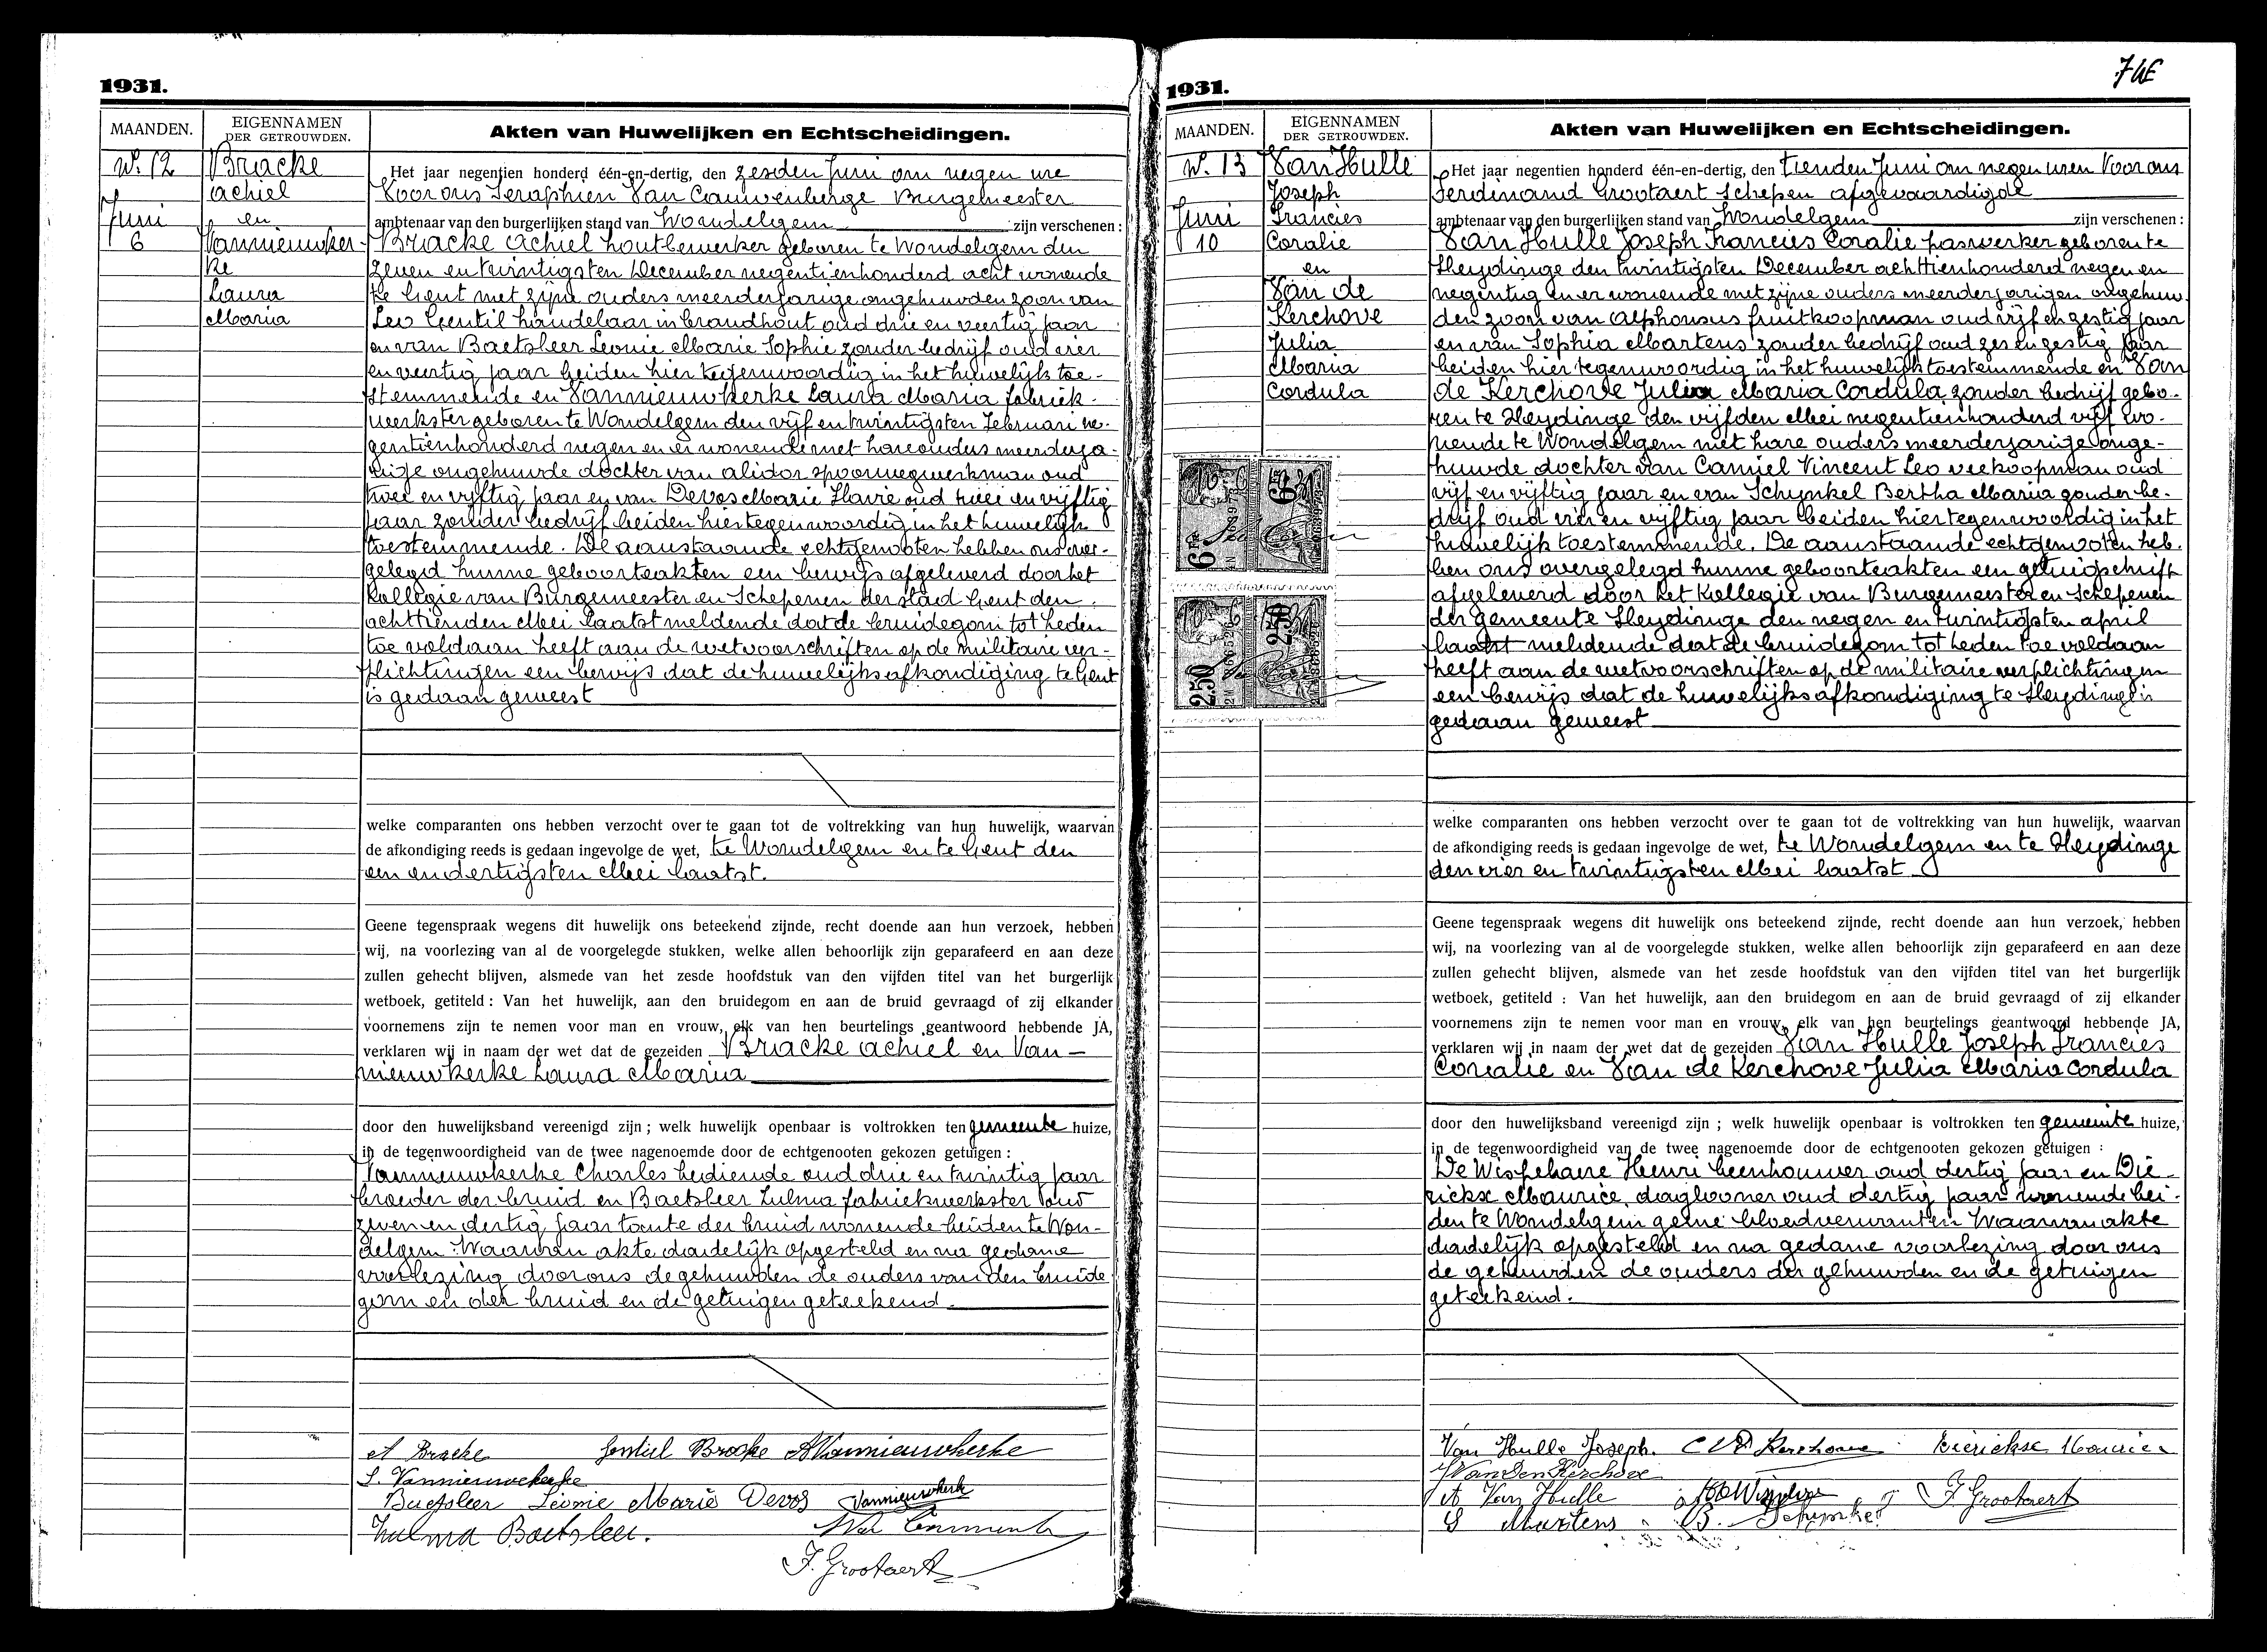 1931.
MAANDEN.
EIGENNAMEN
DER GETROUWDEN.
Akten van Huwelijken en Echtscheidingen.
N. 12
Juni
6
Bracke
Achiel
en
Vannieuwker-
ke
Laura
Maria
Het jaar negentien honderd één-en-dertig, den zesden Juni om negen ure
Voor ons Seraphien Van Cauwenberge Burgemeester
ambtenaar van den burgerlijken stand van Wondelgem zijn verschenen :
Bracke Achiel houtbewerker geboren te Wondelgem den
zeven en twintigsten December negentienhonderd acht wonende
te Gent met zijne ouders meerderjarige ongehuwden zoon van
Leo Gentil handelaar in brandhout oud drie en veertig jaar
en van Baetsleer Leonie Marie Sophie zonder bedrijf oud vier
en veertig jaar beiden hier tegenwoordig in het huwelijk toe-
stemmende en Vannieuwkerke Laura Maria fabriek-
werkster geboren te Wondelgem den vijf en twintigsten Februari ne-
gentienhonderd negen en er wonende met hare ouders meerderja-
rige ongehuwde dochter van Alidor spoorwegwerkman oud
twee en vijftig jaar en van Devos Marie Flavie oud twee en vijftig
jaar zonder bedrijf beiden hier tegenwoordig in het huwelijk
toestemmende. De aanstaande echtgenooten hebben ons over-
gelegd hunne geboorteakten een bewijs afgeleverd door het
Kollegie van Burgemeester en Schepenen der stad Gent den
achttienden Mei laatst meldende dat de bruidegom tot heden
toe voldaan heeft aan de wetvoorschriften op de militaire ver-
plichtingen een bewijs dat de huwelijksafkondiging te Gent
is gedaan geweest
welke comparanten ons hebben verzocht over te gaan tot de voltrekking van hun huwelijk, waarvan
de afkondiging reeds is gedaan ingevolge de wet, te Wondelgem en te Gent den
een en dertigsten Mei laatst.
Geene tegenspraak wegens dit huwelijk ons beteekend zijnde, recht doende aan hun verzoek, hebben
wij, na voorlezing van al de voorgelegde stukken, welke allen behoorlijk zijn geparafeerd en aan deze
zullen gehecht blijven, alsmede van het zesde hoofdstuk van den vijfden titel van het burgerlijk
wetboek, getiteld : Van het huwelijk, aan den bruidegom en aan de bruid gevraagd of zij elkander
voornemens zijn te nemen voor man en vrouw, elk van hen beurtelings geantwoord hebbende JA,
verklaren wij in naam der wet dat de gezeiden Bracke Achiel en Van-
nieuwkerke Laura Maria
door den huwelijksband vereenigd zijn ; welk huwelijk openbaar is voltrokken ten gemeente huize,
in de tegenwoordigheid van de twee nagenoemde door de echtgenooten gekozen getuigen :
Vannieuwkerke Charles bediende oud drie en twintig jaar
broeder der bruid en Baetsleer Zulma fabriekwerkster oud
zeven en dertig jaar tante der bruid wonende beiden te Won-
delgem. Waarvan akte dadelijk opgesteld en na gedane
voorlezing door ons de gehuwden de ouders van den bruide
gom en der bruid en de getuigen geteekend.
A Bracke Gentiel Bracke A Vannieuwkerke
L. Vannieuwekerke
Baetsleer Léonie Marie Devos Vannieuwkerk
Zulma Baetsleer.
F. Grootaert
1931.
MAANDEN.
EIGENNAMEN
DER GETROUWDEN.
Akten van Huwelijken en Echtscheidingen.
N. 13
Juni
10
Van Hulle
Joseph
Francies
Coralie
en
Van de
Kerchove
Julia
Maria
Cordula
6 Fr
6 Fr
2.50
2.50
Het jaar negentien honderd één-en-dertig, den tienden Juni om negen uren Voor ons
Ferdinand Grootaert Schepen afgevaardigde
ambtenaar van den burgerlijken stand van Wondelgem zijn verschenen :
Van Hulle Joseph Francies Coralie paswerker geboren te
Sleydinge den twintigsten December achttienhonderd negen en
negentig en er wonende met zijne ouders meerderjarigen ongehuw-
den zoon van Alphonsus fruitkoopman oud vijf en zestig jaar
en van Sophia Martens zonder bedrijf oud zes en zestig jaar
beiden hier tegenwoordig in het huwelijk toestemmende en Van
de Kerchove Julia Maria Cordula zonder bedrijf gebo-
ren te Sleydinge den vijfden Mei negentienhonderd vijf wo-
nende te Wondelgem met hare ouders meerderjarige onge-
huwde dochter van Camiel Vincent Leo veekoopman oud
vijf en vijftig jaar en van Schynkel Bertha Maria zonder be-
drijf oud vier en vijftig jaar beiden hier tegenwoordig in het
huwelijk toestemmende. De aanstaande echtgenooten heb-
ben ons overgelegd hunne geboorteakten een getuigschrift
afgeleverd door het Kollegie van Burgemeester en Schepenen
der gemeente Sleydinge den negen en twintigsten april
laatst meldende dat de bruidegom tot heden toe voldaan
heeft aan de wetvoorschriften op de militaire verplichtingen
een bewijs dat de huwelijksafkondiging te Sleydinge is
gedaan geweest
welke comparanten ons hebben verzocht over te gaan tot de voltrekking van hun huwelijk, waarvan
de afkondiging reeds is gedaan ingevolge de wet, te Wondelgem en te Sleydinge
den vier en twintigsten Mei laatst
Geene tegenspraak wegens dit huwelijk ons beteekend zijnde, recht doende aan hun verzoek, hebben
wij, na voorlezing van al de voorgelegde stukken, welke allen behoorlijk zijn geparafeerd en aan deze
zullen gehecht blijven, alsmede van het zesde hoofdstuk van den vijfden titel van het burgerlijk
wetboek, getiteld : Van het huwelijk, aan den bruidegom en aan de bruid gevraagd of zij elkander
voornemens zijn te nemen voor man en vrouw, elk van hen beurtelings geantwoord hebbende JA,
verklaren wij in naam der wet dat de gezeiden Van Hulle Joseph Francies
Coralie en Van de Kerchove Julia Maria Cordula
door den huwelijksband vereenigd zijn ; welk huwelijk openbaar is voltrokken ten gemeente huize,
in de tegenwoordigheid van de twee nagenoemde door de echtgenooten gekozen getuigen :
De Wispelaere Henri beenhouwer oud dertig jaar en Die-
rickse Maurice daglooner oud dertig jaar wonende bei-
den te Wondelgem geene bloedverwanten Waarvan akte
dadelijk opgesteld en na gedane voorlezing door ons
de gehuwden de ouders der gehuwden en de getuigen
geteekend.
Van Hulle Joseph. C VD Kerchove Dierickse Maurice
J Van Den Kerchove
A Van Hulle F. Grootaert
S Martens B. Schynkel